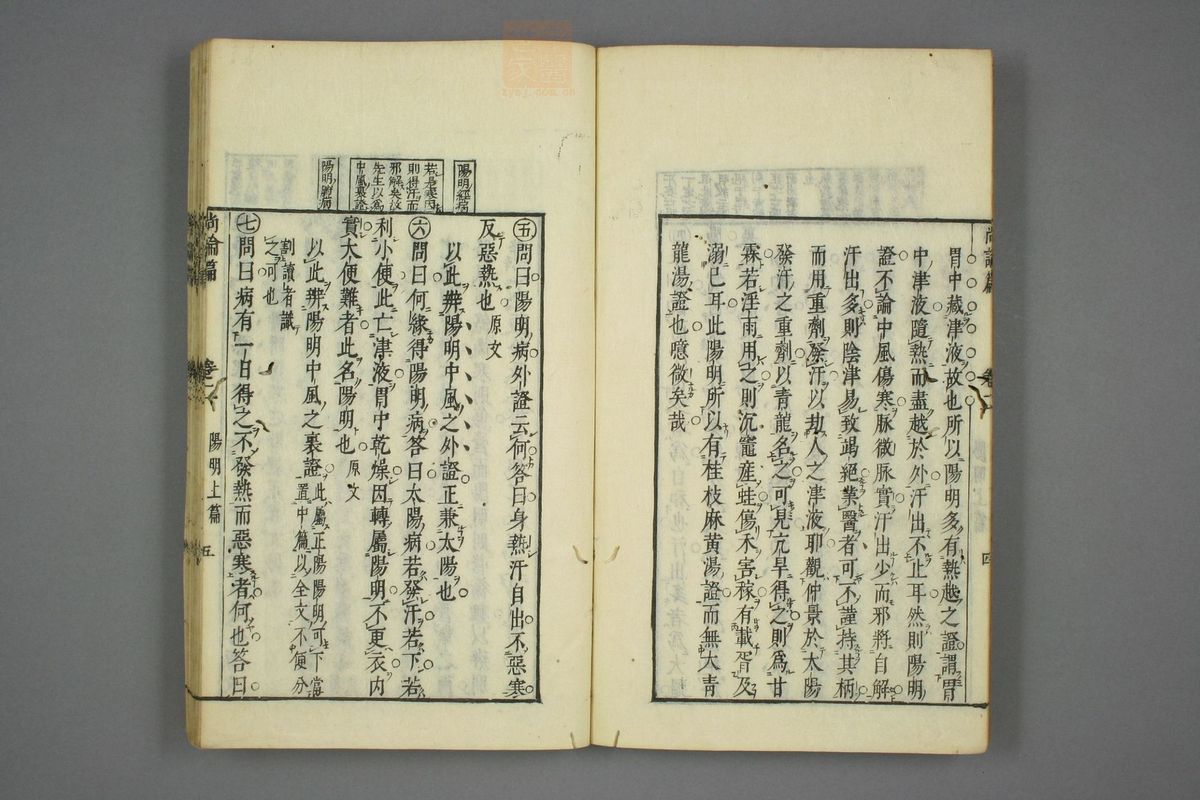 胃中藏津液故也所以陽明多有熱越之證謂胃
中津液隨熱而盡越於外汗出不止耳然則陽明
證不論中風傷寒脉微脉實汗出少而邪將自解
汗出多則陰津易致竭絕業醫者可不謹持其柄
而用重劑發汗以劫人之津液耶觀仲景於太陽
發汗之重劑以青龍名之可見亢旱得之則爲甘
霖若淫雨用之則沉竈產蛙傷禾害稼有載胥及
溺已耳此陽明所以有桂枝麻黄湯證而無大青
龍湯證也噫微矣哉
尚論篇
卷二
陽明上篇
四
陽明經病
若是寒內
則得汗而
邪解矣故
先生以爲
中風裏證
陽明腑病
五問曰陽明病外證云何答曰身熱汗自出不惡寒
反惡熱也原文
以此辨陽明中風之外證正兼太陽也
六問曰何緣得陽明病答曰太陽病若發汗若下若
利小便此亡津液胃中乾燥因轉屬陽明不更衣内
實大便難者此名陽明也原文
以此辨陽明中風之裏證此屬正陽陽明可下當
置中篇以全文不便分
割讀者識
之可也
七問曰病有一日得之不發熱而惡寒者何也答曰
尚論篇
卷二
陽明上篇
五
zysj.com.cn